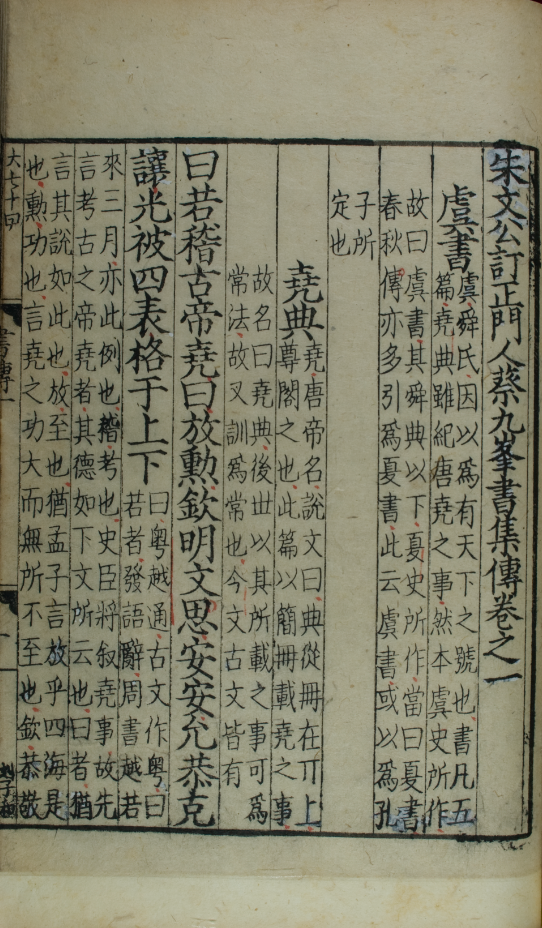 朱文公訂正門人蔡九峯書集傳卷之一
虞書
虞舜氏因以爲有天下之號也書凡五
篇堯典雖紀唐堯之事然本虞史所作
故曰虞書其舜典以下夏史所作當曰夏書
春秋傳亦多引爲夏書此云虞書或以爲孔
子所
定也
堯典
堯唐帝名說文曰典從冊在丌上
尊閣之也此篇以簡冊載堯之事
故名曰堯典後世以其所載之事可爲
常法故又訓爲常也今文古文皆有
曰若稽古帝堯曰放勲欽明文思安安允恭克
讓光被四表格于上下
曰粤越通古文作粤曰
若者發語辭周書越若
來三月亦此例也稽考也史臣將叙堯事故先
言考古之帝堯者其德如下文所云也曰者猶
言其說如此也放至也猶孟子言放乎四海是
也勲功也言堯之功大而無所不至也欽恭敬
大七十四
書傳一